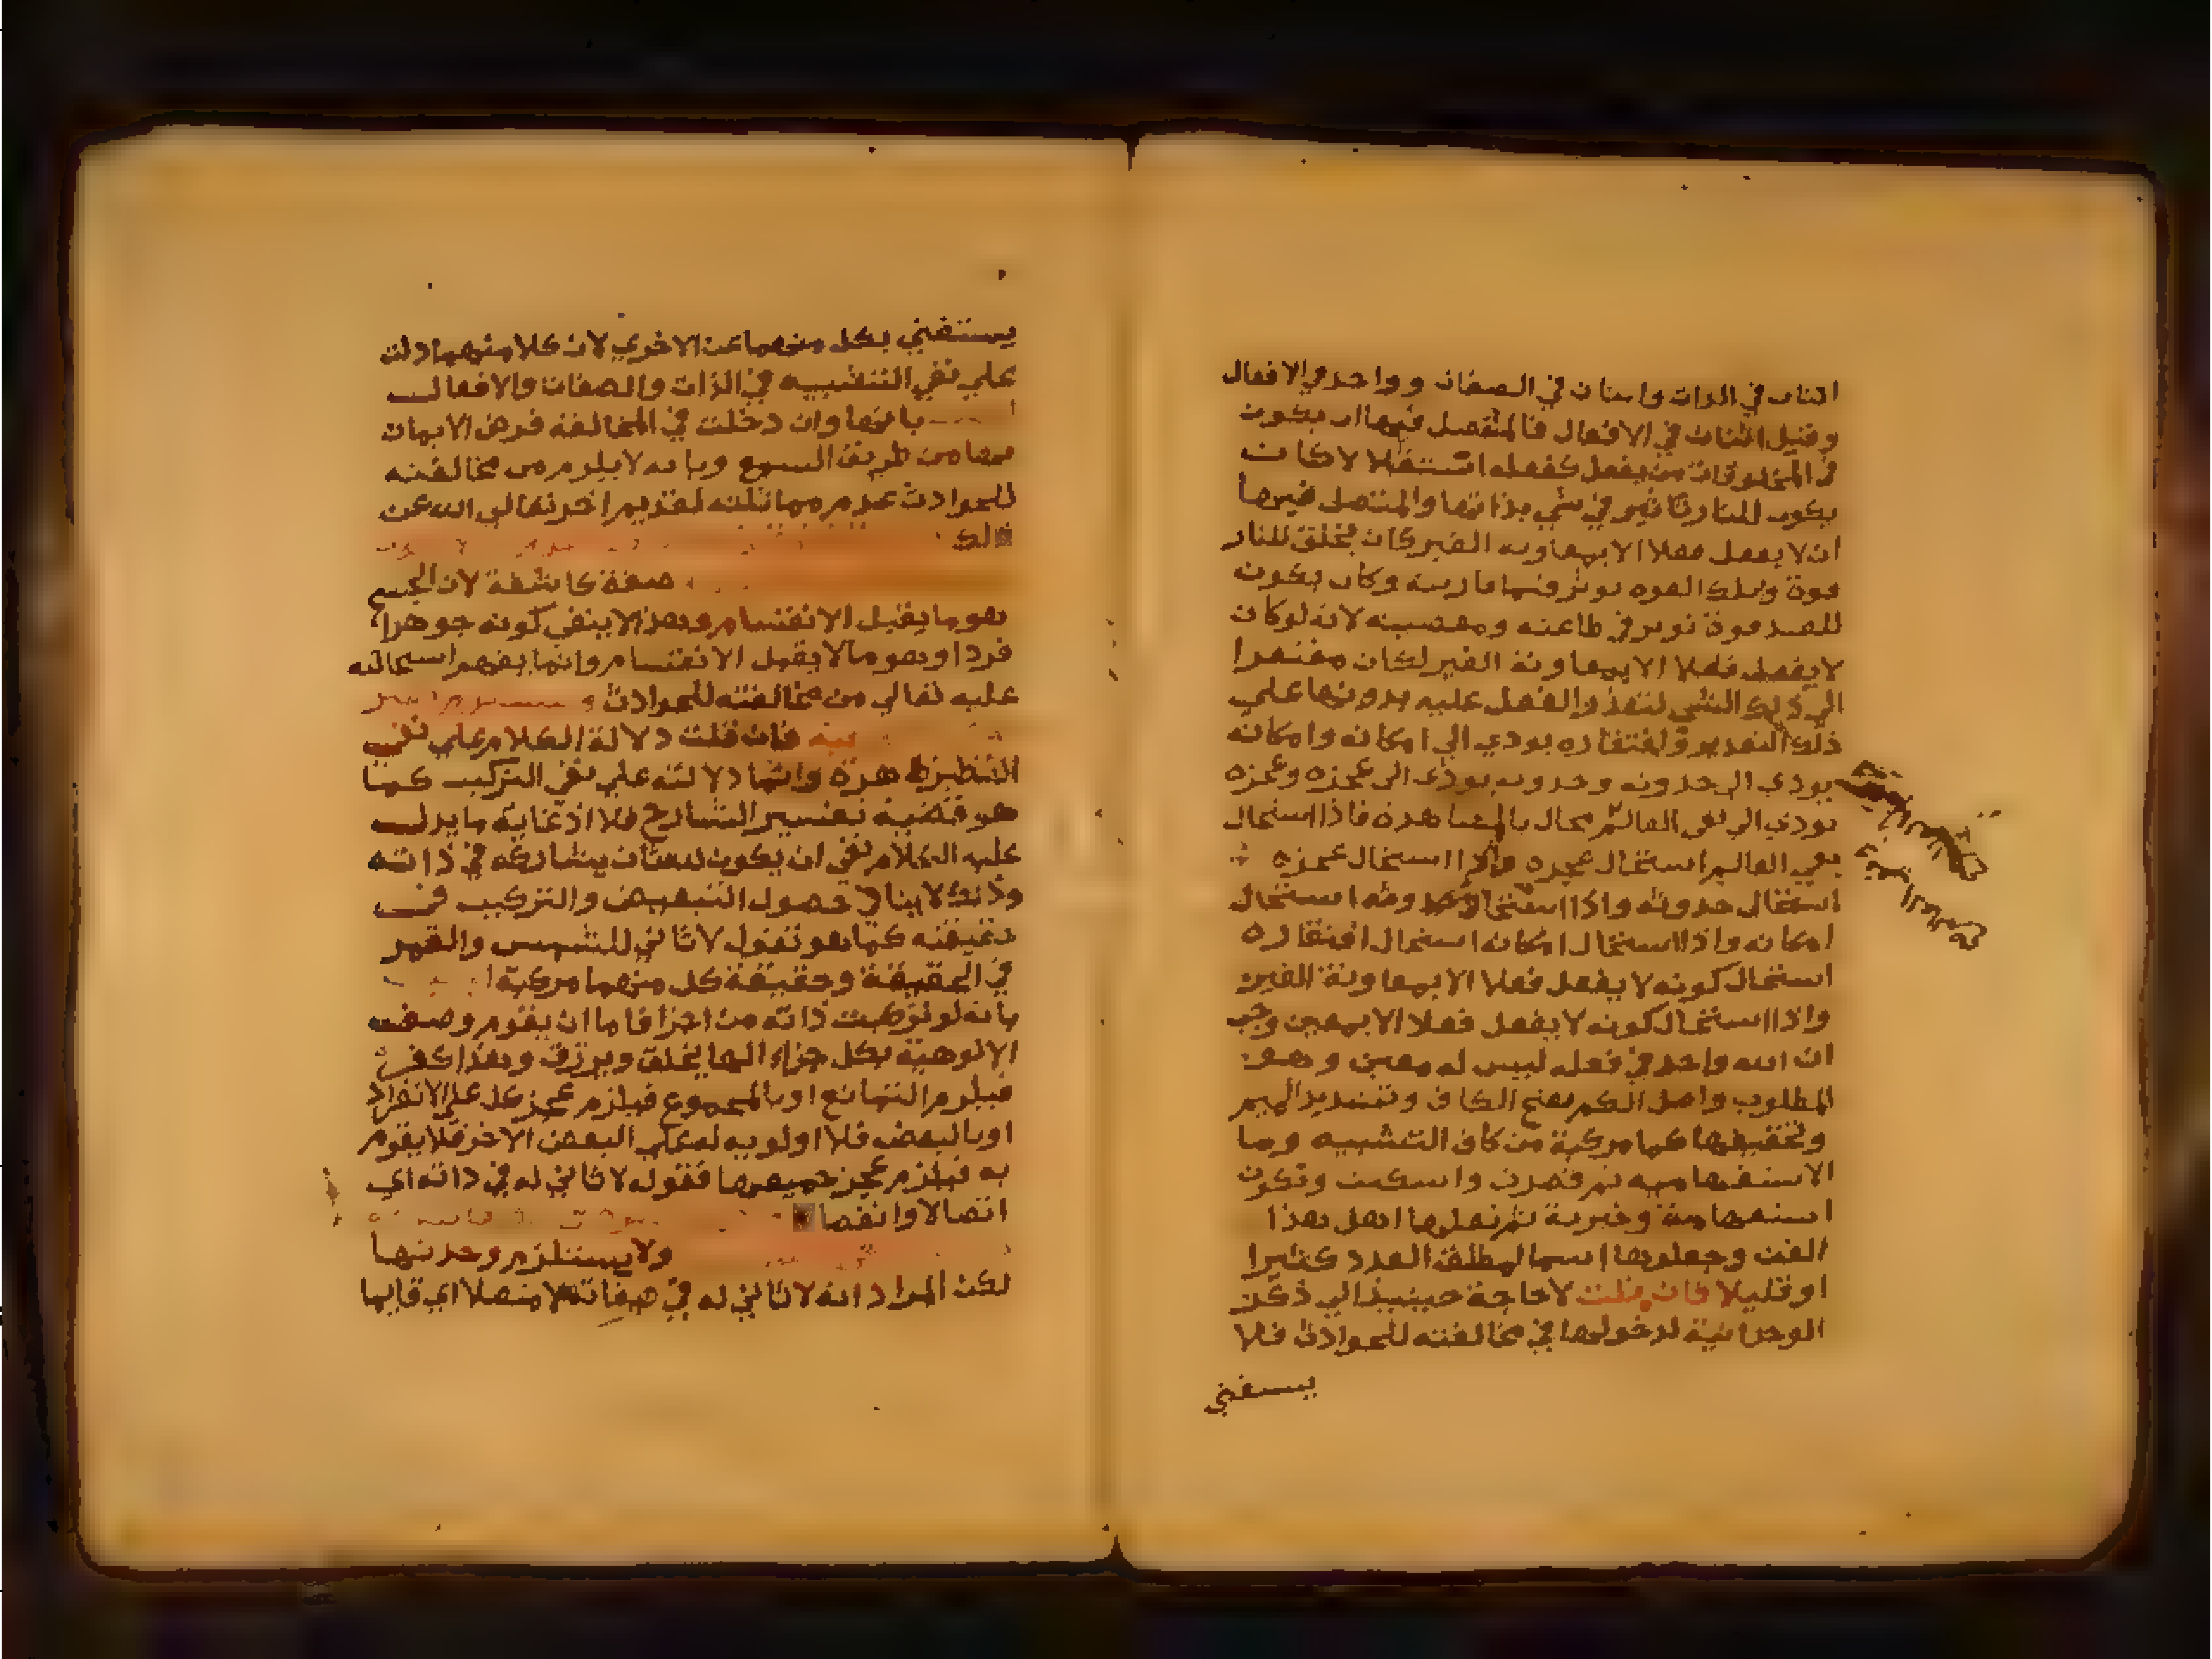 اثنان في الذات واثنان في الصفات وواحد في الافعال
وقيل اثنان في الافعال فالمتصل فيها ان يكون
في المخلوقات من يفعل كفعله استقلالا كان
يكون للنار تاثير في شي بذاتها والمنفصل فيها
ان لا يفعل فعلا الا بمعاونه الغير كان يخلق للنار
قوة وتلك القوه توثر فيما قاربته وكان يكون
للعبد قوة توثر في طاعته ومعصيته لانه لو كان
لا يفعل فعلا الا بمعاونة الغير لكان مفتقرا
الي ذلك الشي لتعذر الفعل عليه بدونها علي
ذلك التقدير وافتقاره يودي الي امكانه وامكانه
يودي الي حدوثه وحدوثه يودي الي عجزه وعجزه
يودي الي نفي العالم محال بالمشاهدة فاذا استحال
نفي العالم استحال عجزه واذا استحال عجزه
استحال حدوثه واذا استحال حدوثه استحال
امكانه واذا استحال امكانه استحال افتقاره
استحال كونه لا يفعل فعلا الا بمعاونة الغير
واذا استحال كونه لا يفعل فعلا الا بمعين وجب
ان الله واحد في فعله ليس له معين وهو
المطلوب واصل الكم بفتح الكاف وتشديد الميم
وتخفيفها كما مركبة من كاف التشبيه وما
الاستفهاميه ثم قصرت واسكنت وتكون
استفهامية وخبرية ثم نقلها اهل هذا
الفن وجعلوها اسما لمطلق العدد كثيرا
او قليلا فان قلت لا حاجة حينيذ الي ذكر
الوحدانية لدخولها في مخالفته للحوادث فلا
يستغني
يستغني بكل منهما عن الاخري لان كلا منهما دلت
علي نفي التشبيه في الذات والصفات والافعال
بانها وان دخلت في المخالفة فرض الايمان
بها من طريق السمع وبانه لا يلزم من مخالفته
للحوادث عدم مماثلته لقديم اخر تعالي الله عن
ذلك
صفة كاشفة لان الجسم
هو ما يقبل الانقسام وهذا لا ينفي كونه جوهرا
فردا وهو ما لا يقبل الانقسام وانما يفهم استحالته
عليه تعالي من مخالفته للحوادث
فان قلت دلالة الكلام علي نفي
النظير ظاهرة وانما دلالته علي نفي التركيب كما
هو قضية تفسير الشارح فلا اذ غاية ما يدل
عليه الكلام نفي ان يكون له ثان يشاركه في ذاته
وذلك لا ينافي حصول التبعيض والتركيب في
حقيقته كما هو تقول لا ثاني للشمس والقمر
في الحقيقة وحقيقة كل منهما مركبة
بانه لو تركبت ذاته من اجزا فاما ان يقوم وصف
الالوهية بكل جزاء الها يخلق ويرزق وهذا كفر
فيلزم التمانع او بالمجموع فيلزم عجز كل علي الانفراد
او بالبعض فلا اولوية له علي البعض الاخر فلا يقوم
به فيلزم عجز جميعها فقوله لا ثاني له في ذاته اي
اتصالا وانفصالا
ولا يستلزم وحدتها
لكن المراد انه لا ثاني له في صفاته لا متصلا اي قايما